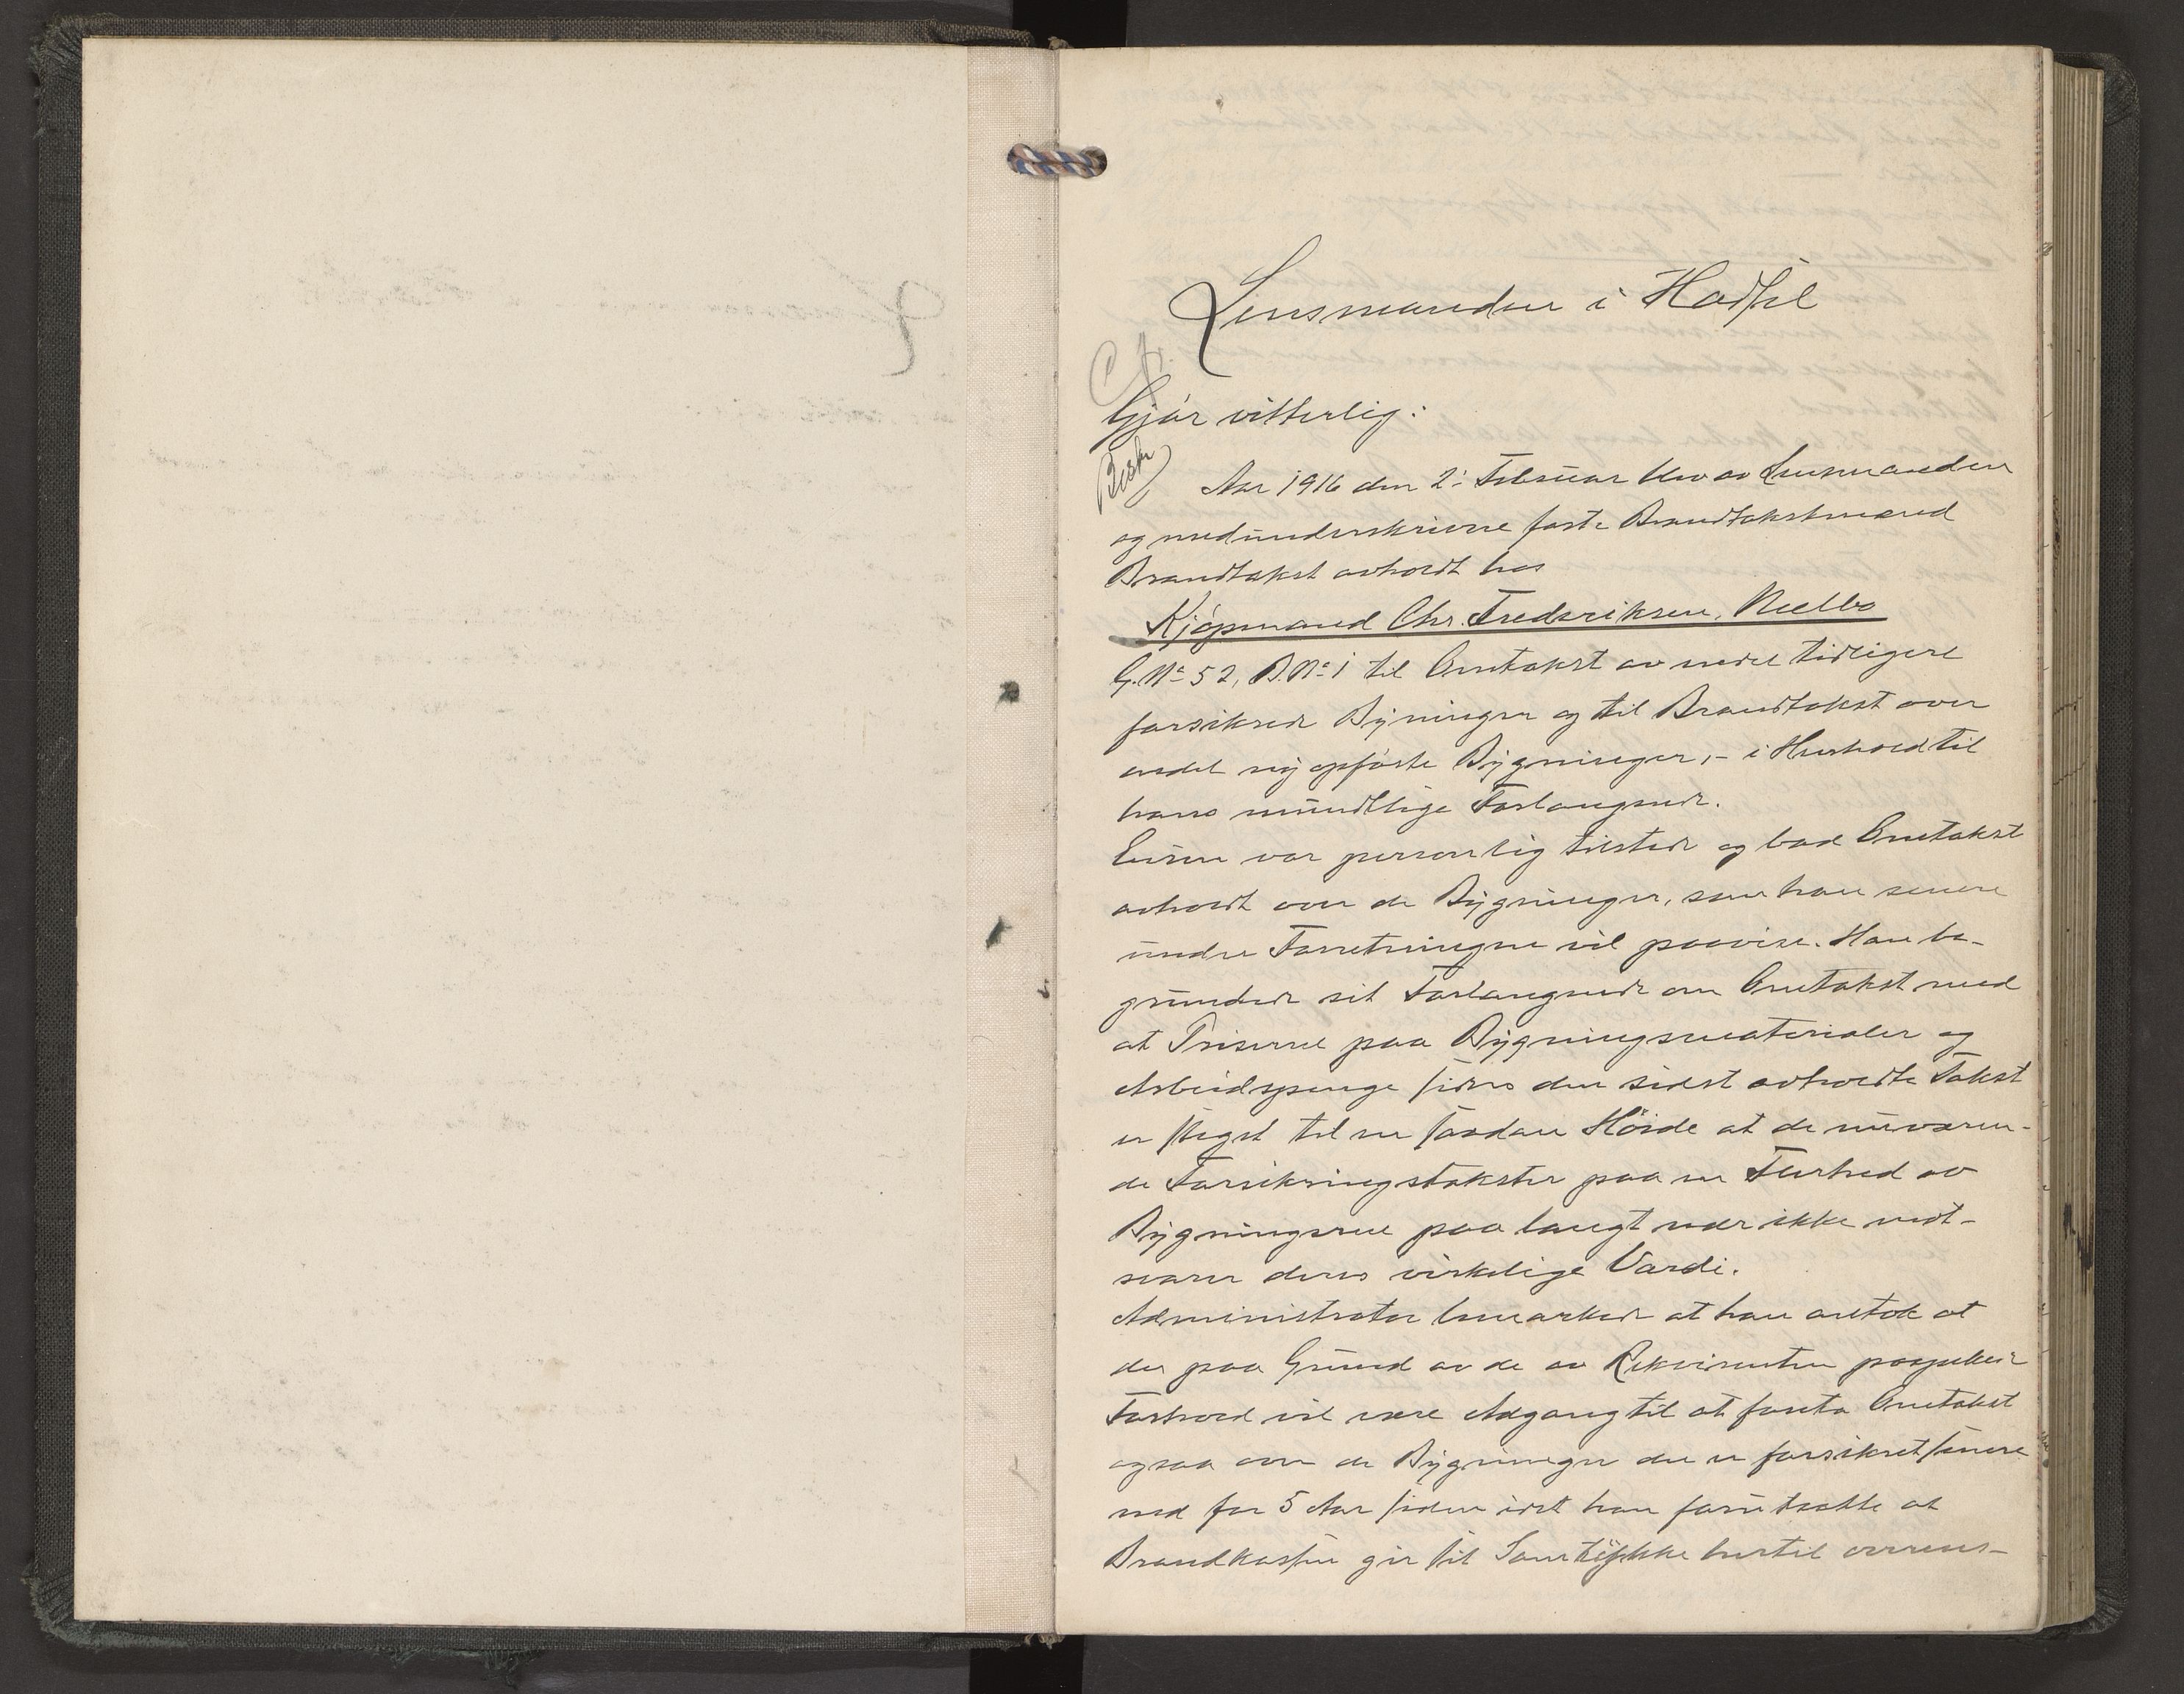 Lensmanden i Hadsel
Cfr.
Gjør vitterlig:
Besk
Aar 1916 den 2. Februar blev av Lensmanden
og medunderskrevne faste Brandtakstmænd
Brandtakst avholdt hos
Kjøpmand Chr. Fredriksen, Melbo
G.No 52, B.No 1 til Omtakst av endel tidligere
forsikrede Bygninger og til Brandtakst over
endel ny opførte Bygninger, - i Henhold til
hans mundtlige Forlangende.
Eieren var personlig tilstede og bad Omtakst
avholdt over de Bygninger, som han senere
under Forretningen vil paavise. Han be-
grundede sit Forlangende om Omtakst med
at Priserne paa Bygningsmaterialer og
Arbeidspenge siden den sidst avholdte Takst
er steget til en saadan Høide at de nuværen-
de Forsikringstakster paa en Flerhed av
Bygningerne paa langt nær ikke mot-
svarer deres virkelige Værdi.
Administrator bemærkede at han antok at
der paa Grund av de av Rekvirenten paapekede
Forhold vil være Adgang til at foreta Omtakst
ogsaa over de Bygninger der er forsikret senere
end for 5 Aar siden idet han forutsatte at
Brandkassen gir sit Samtykke hertil overens-